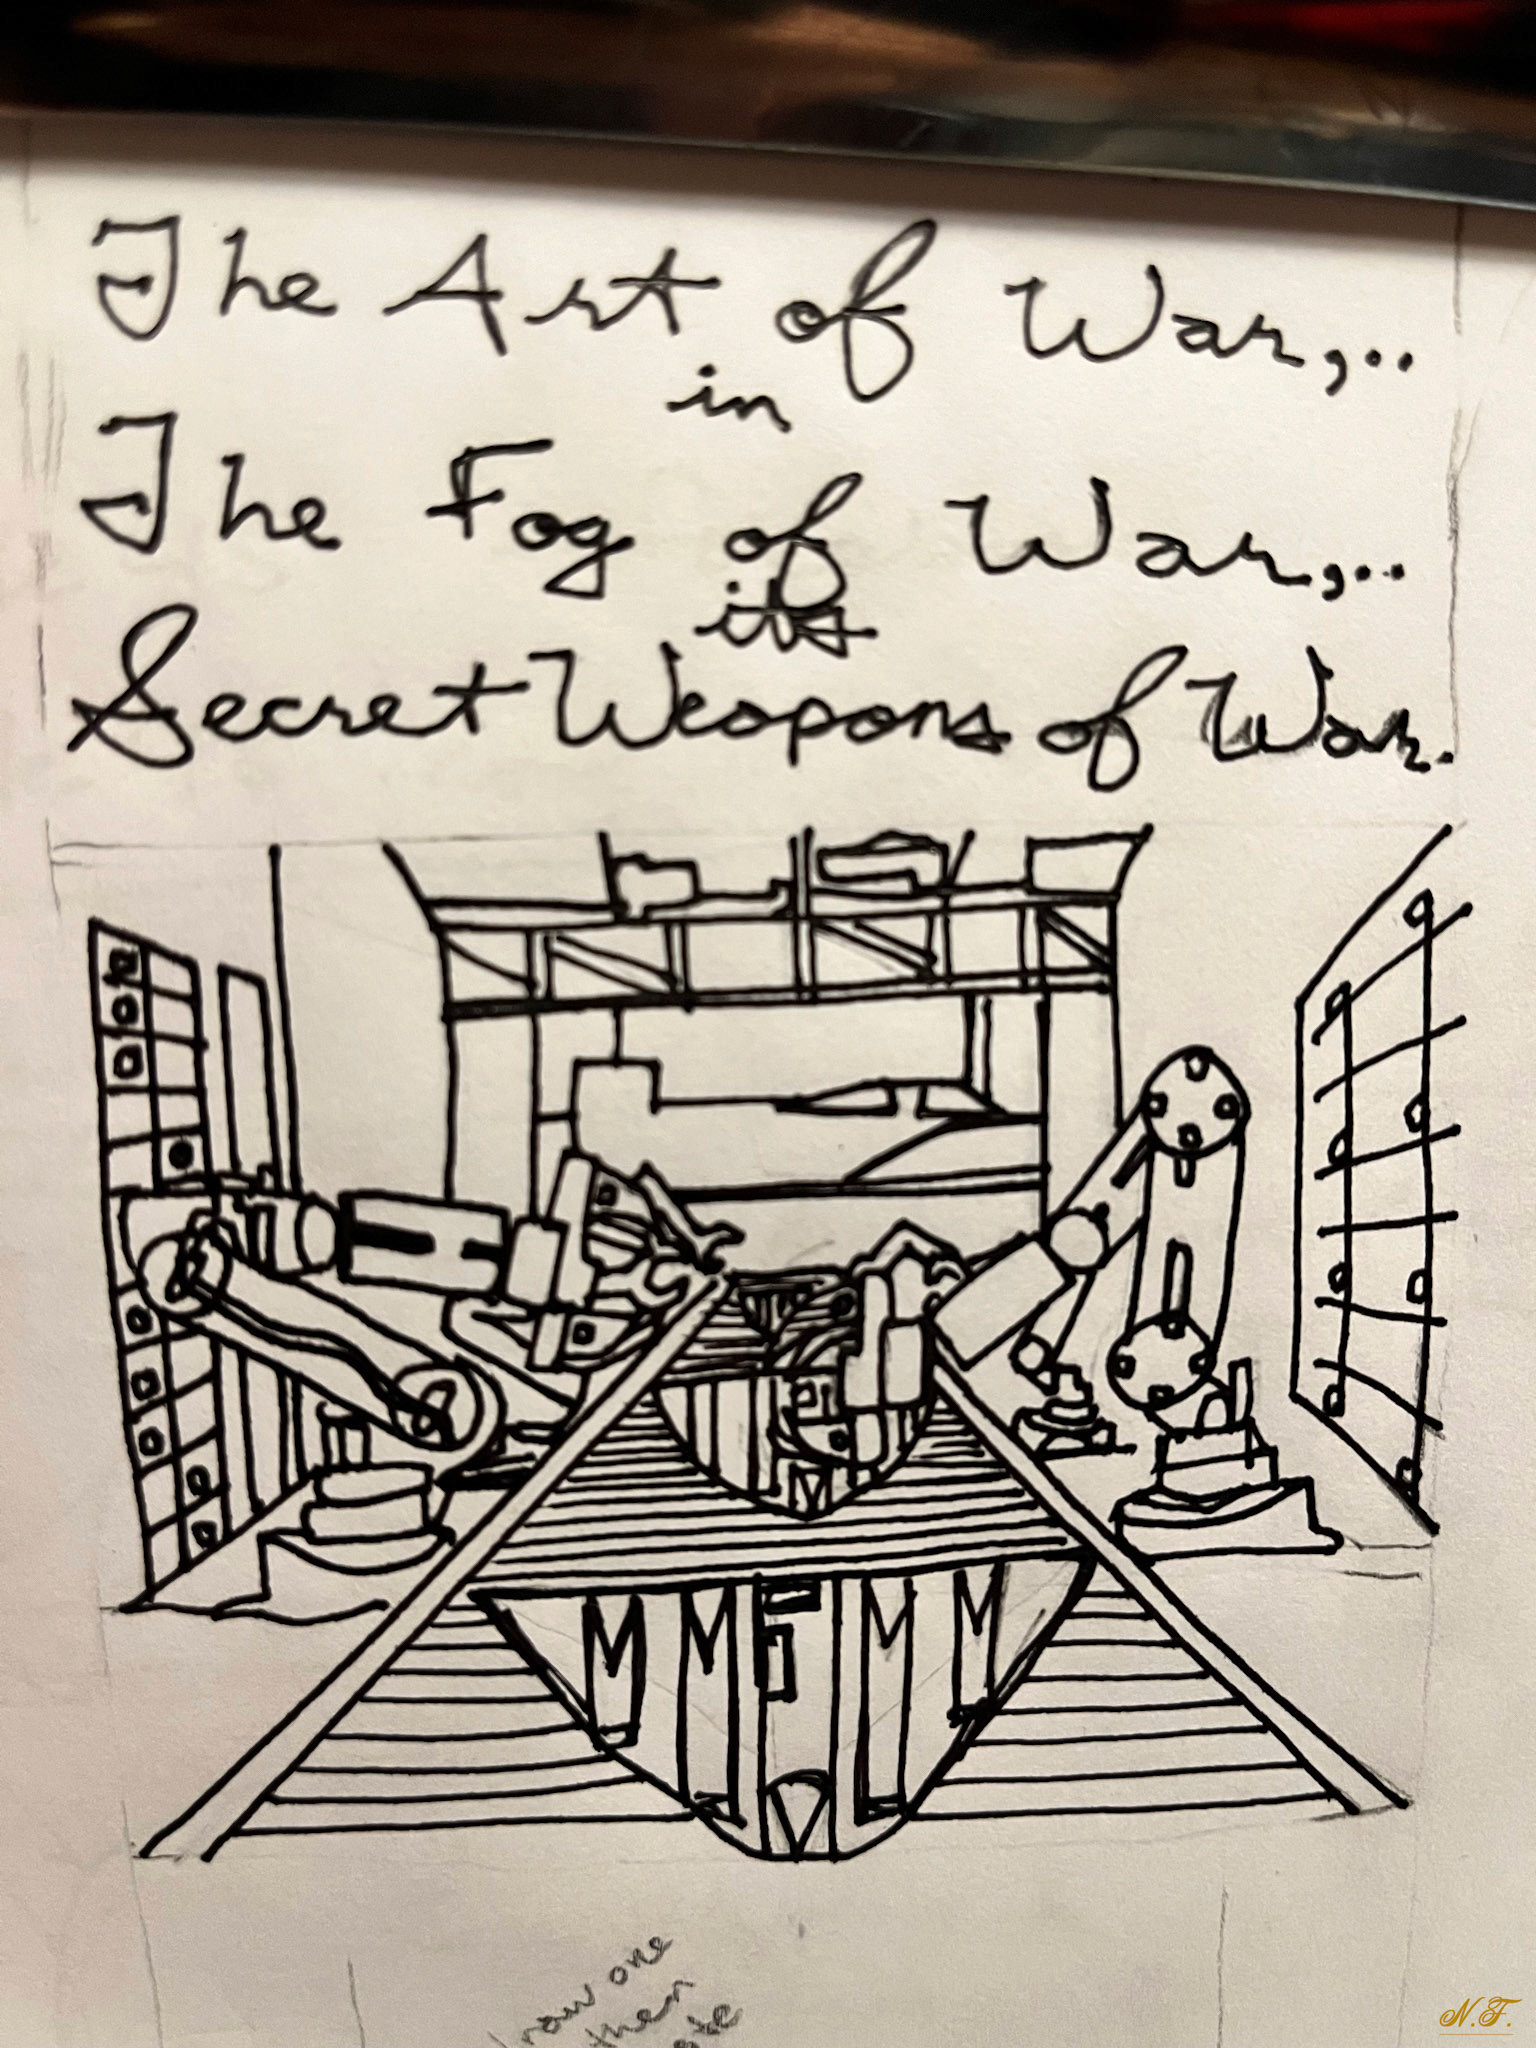 The Art of War,..
in
The Fog of War,..
its
Secret Weapons of War.
one
then
N.F.